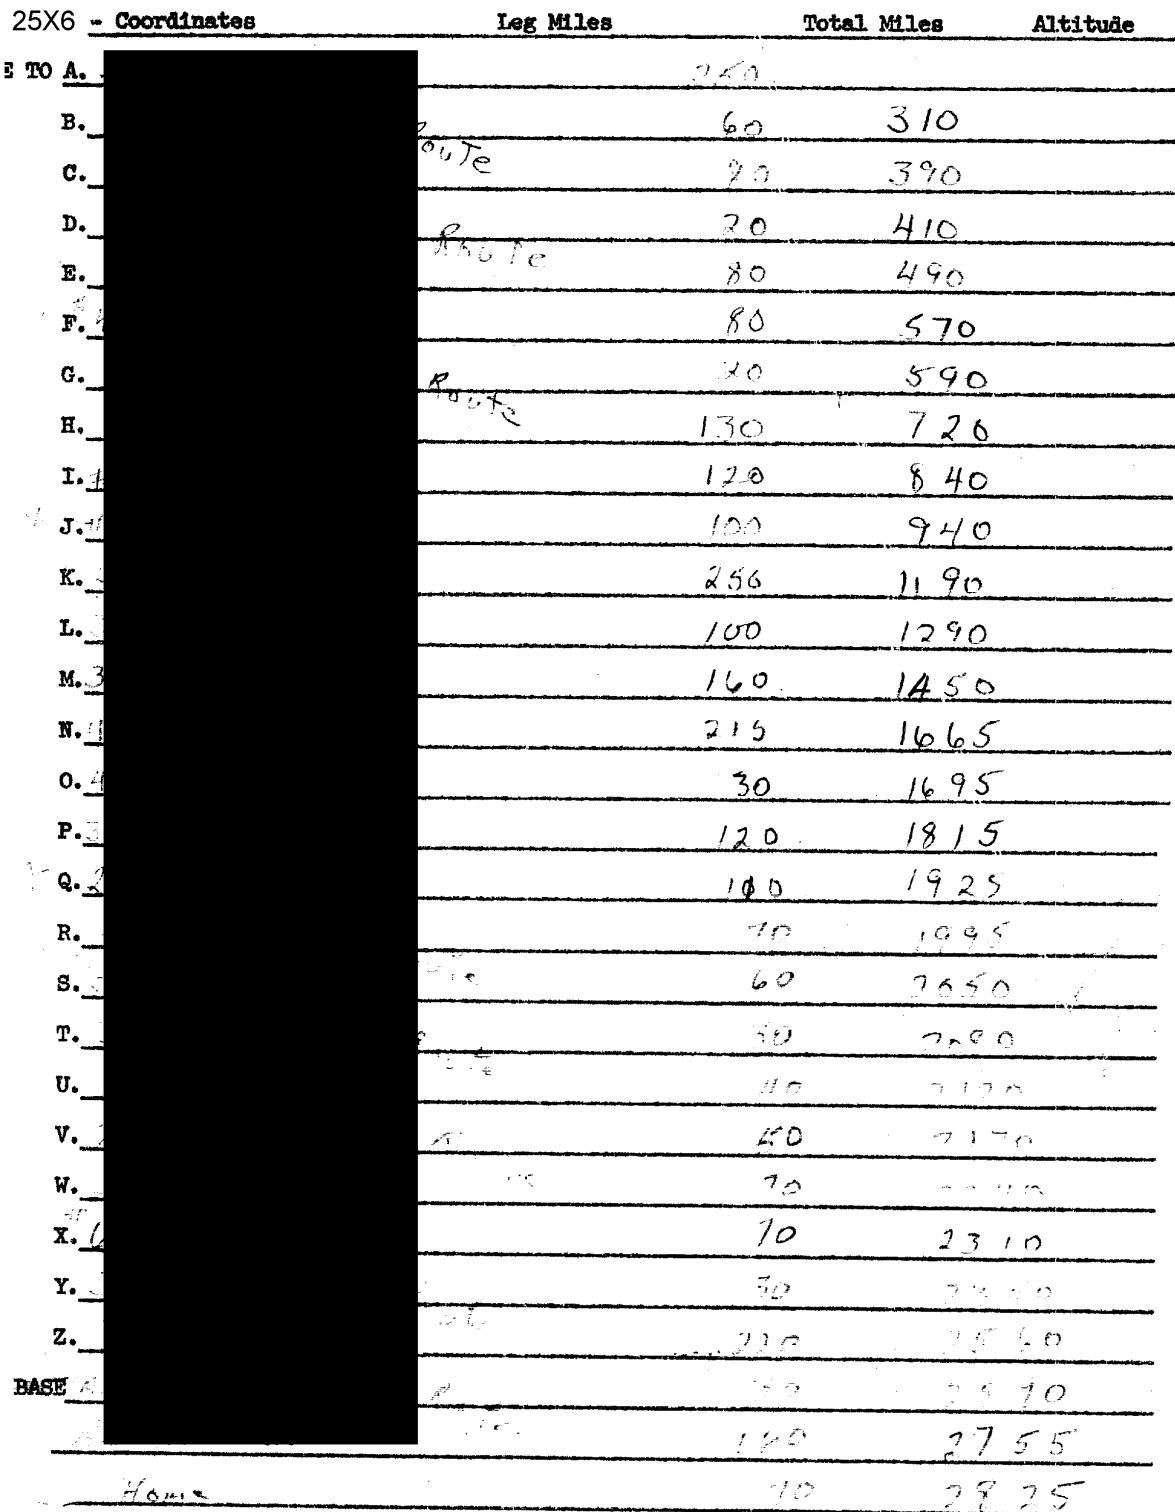 25X6 - Coordinates Leg Miles Total Miles Altitude
E TO A. 250
B. 60 310
Route
C. 80 390
D. 20 410
Route
E. 80 490
F. 80 570
G. 20 590
Route
H. 130 720
I. 120 840
J. 100 940
K. 250 1190
L. 100 1290
M. 3 160 1450
N. 4 215 1665
O. 4 30 1695
P. 3 120 1815
Q. 2 110 1925
R. 70 1995
S. 60 2050
T. 30 2080
U. 40 2120
V. 50 2170
W. 70
X. 6 70 2310
Y. 30
Z. 220 2560
BASE 2590
2755
Home 70 2825